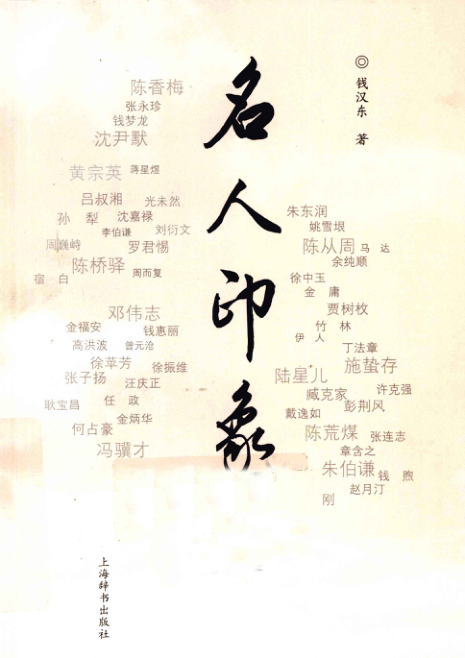 ◎ 钱汉东 著
名人印象
陈香梅
张永珍
钱梦龙
沈尹默
黄宗英 蒋星煜
吕叔湘 光未然
孙犁 沈嘉禄
李伯谦 刘衍文
周巍峙 罗君惕
陈桥驿 周而复
宿白
邓伟志
金福安 钱惠丽
高洪波 曾元沧
徐苹芳 徐振维
张子扬 汪庆正
耿宝昌 任政
金炳华
何占豪
冯骥才
朱东润
姚雪垠
陈从周 马达
余纯顺
徐中玉
金庸
贾树枚
竹林
伊人
丁法章
施蛰存
陆星儿
臧克家 许克强
戴逸如 彭荆风
陈荒煤 张连志
章含之
朱伯谦 钱煦
赵月汀
刚
上海辞书出版社